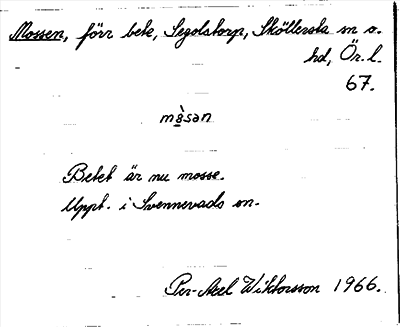 Mossen, förr bete, Segolstorp, Sköllersta sn o.
hd, Ör. l.
67.
mås̀ən
Betet är nu mosse.
Uppt. i Svennevads sn.
Per-Axel Wiktorsson 1966.